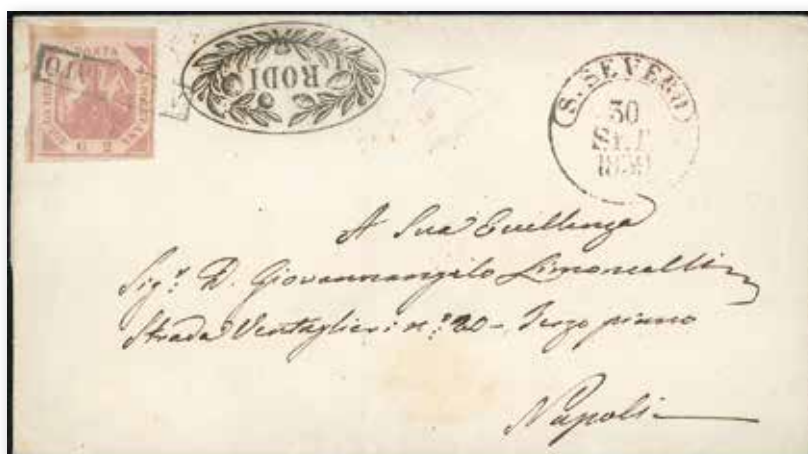 RODI
S. SEVERO
30
SET
1859
A Sua Eccellenza
Sig.r D. Giovannangelo Limoncelli
Strada Ventaglieri n.° 20 - Terzo piano
Napoli